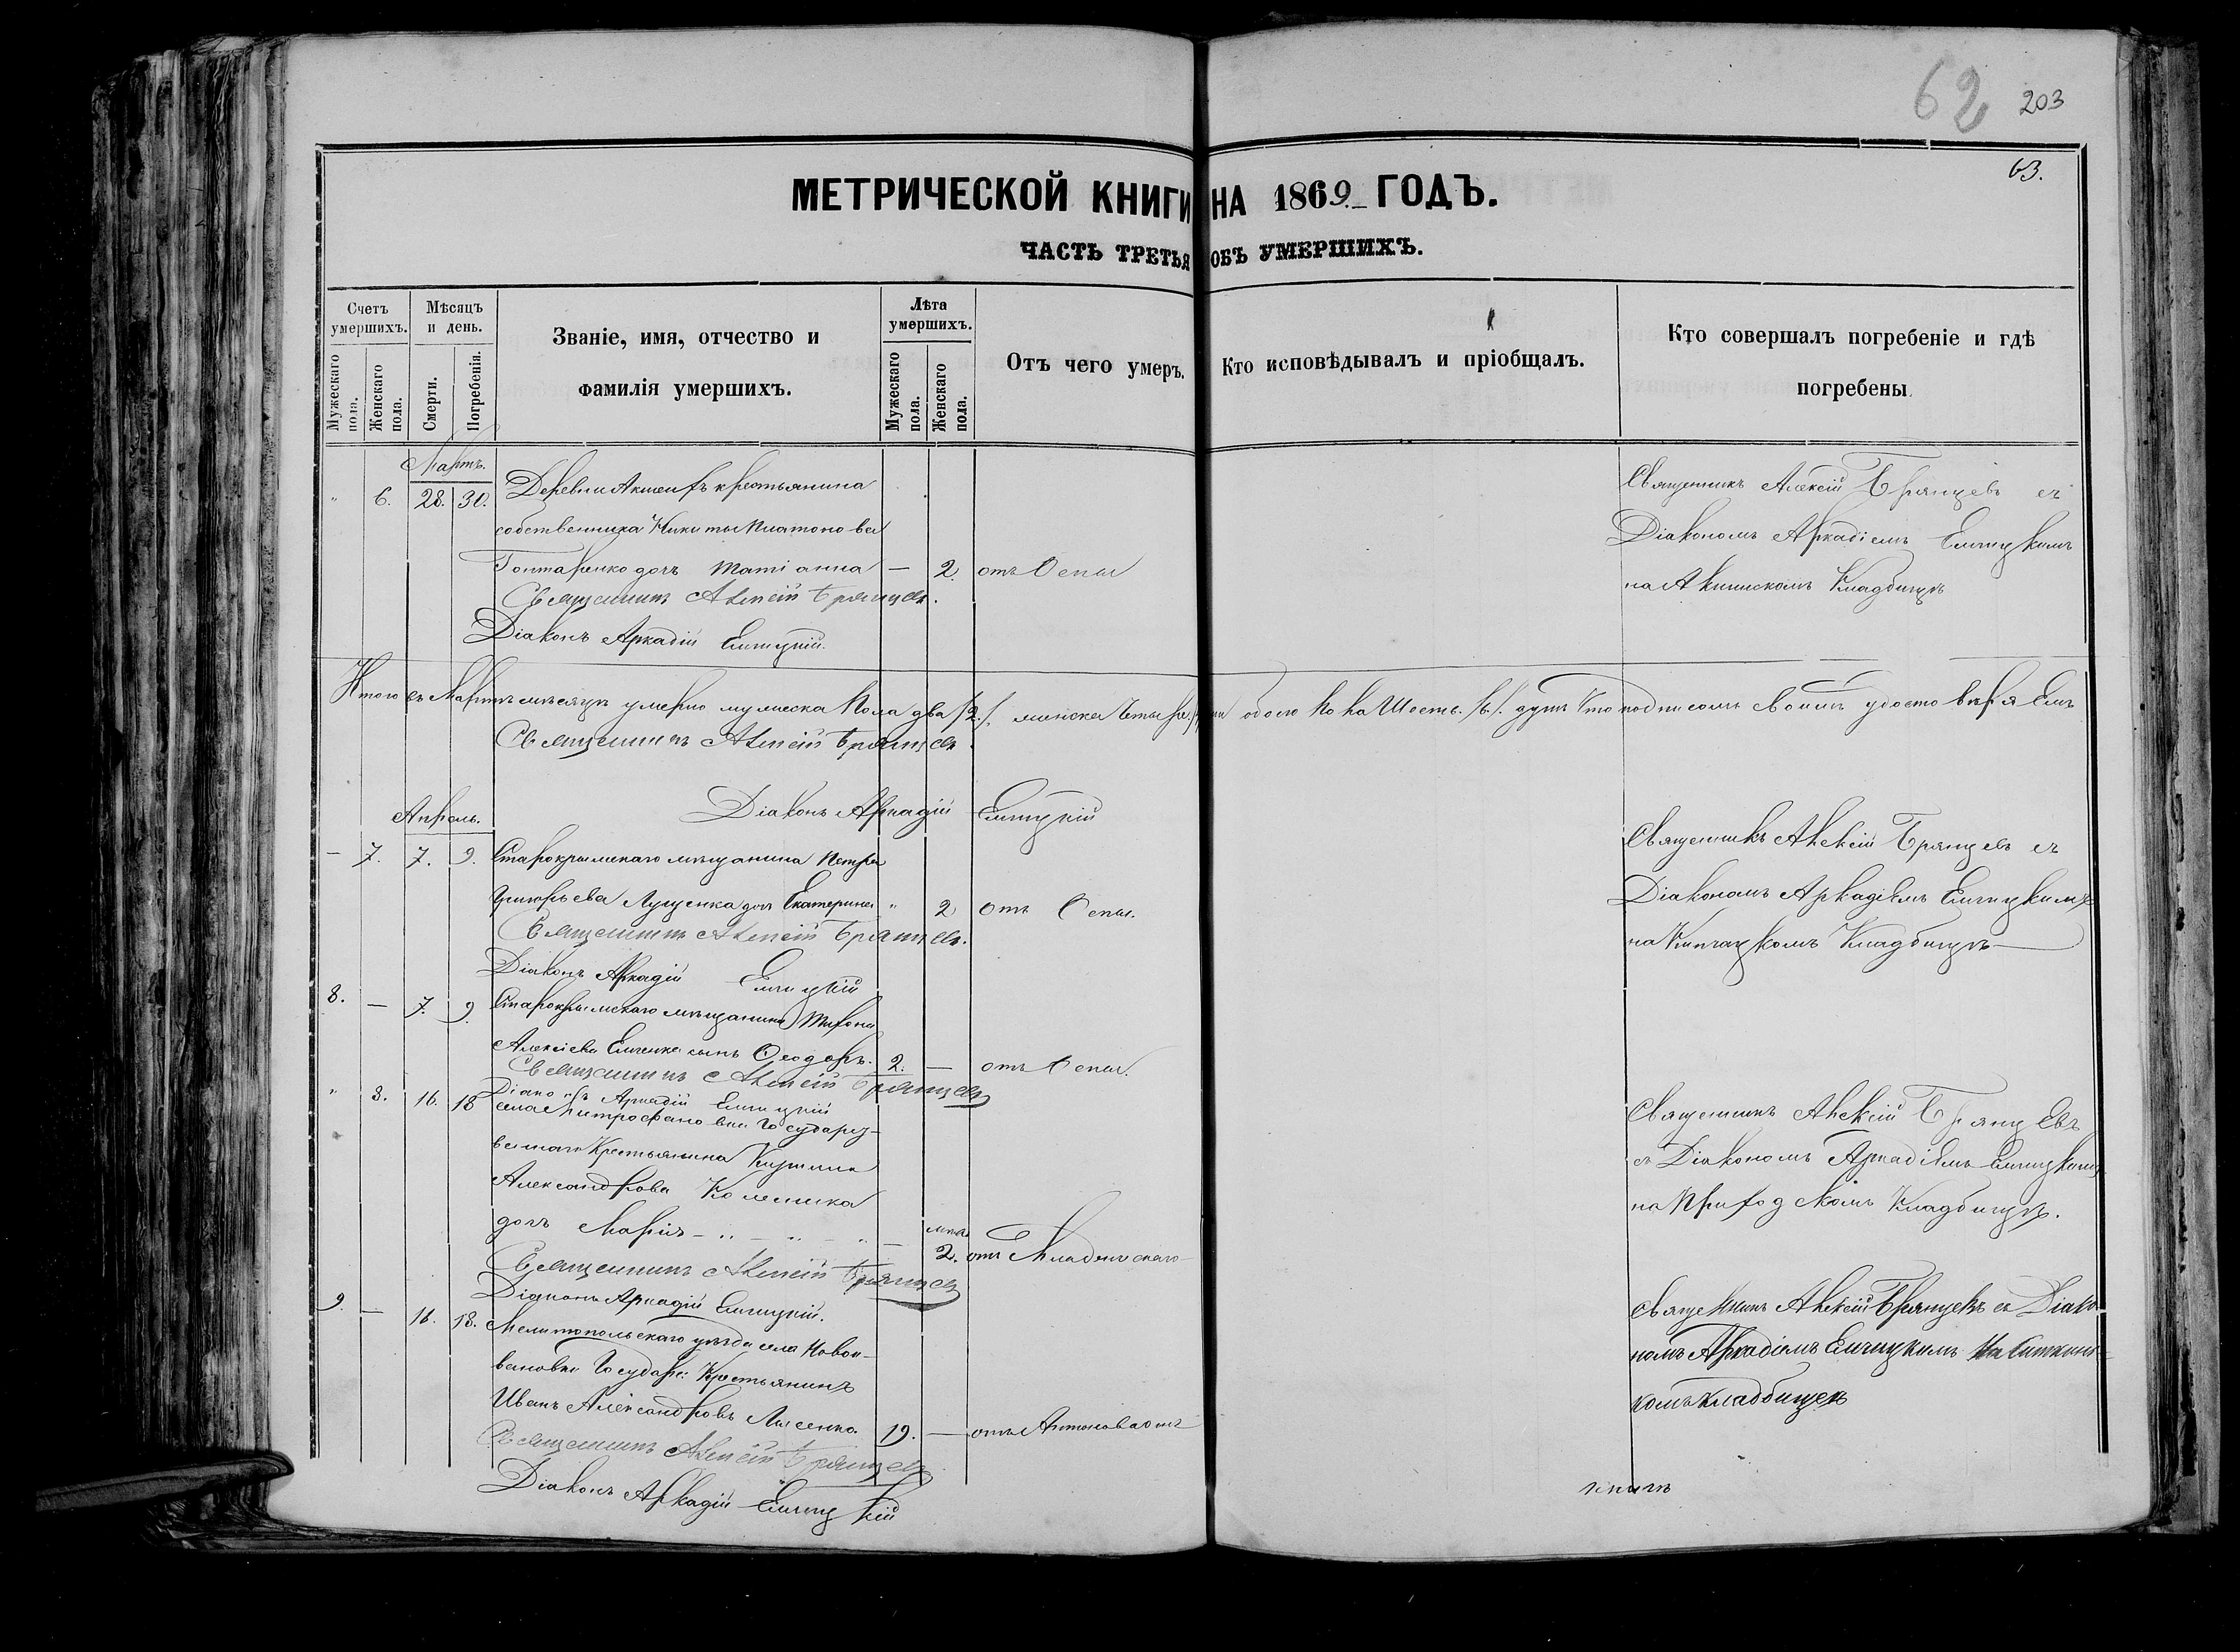 62 203
63.
МЕТРИЧЕСКОЙ КНИГИ НА 1869. ГОДЪ.
ЧАСТЬ ТРЕТЬЯ ОБЪ УМЕРШИХЪ.
Счетъ умершихъ.
Мужескаго пола.
Женскаго пола.
Мѣсяцъ и день.
Смерти.
Погребенія.
Званіе, имя, отчество и
фамилія умершихъ.
Лѣта умершихъ.
Мужескаго пола.
Женскаго пола.
Отъ чего умеръ.
Кто исповѣдывалъ и пріобщалъ.
Кто совершалъ погребеніе и гдѣ
погребены.
Мартъ.
" 6. 28. 30. Деревни крестьянина
собственника Никиты Платонова
Гонтаренко дочь Татіанна — 2. отъ Оспы
Священникъ Алексій Брянцевъ.
Діаконъ Аркадій Елчицкій.
Священникъ Алексій Брянцевъ съ
Діакономъ Аркадіемъ Елчицкимъ
на Кладбищѣ
Итого въ Мартѣ мѣсяцѣ умерло мужеска Пола два /2./. женска Четыре обоего Пола Шесть. /6./. душъ Что подписомъ своимъ удостовѣряемъ
Священникъ Алексій Брянцевъ.
Діаконъ Аркадій Елчицкій
Апрель.
— 7. 7. 9. Старокрымскаго мѣщанина Петра
Григорьева Лущенка дочь Екатерина " 2 отъ Оспы.
Священникъ Алексій Брянцевъ.
Діаконъ Аркадій Елчицкій
Священникъ Алексій Брянцевъ съ
Діакономъ Аркадіемъ Елчицкимъ
на Кипчацкомъ Кладбищѣ
8. — 7. 9. Старокрымскаго мѣщанина Тихона
Алексіева сынъ Ѳеодоръ. 2. — отъ Оспы.
Священникъ Алексій Брянцевъ
Діаконъ Аркадій Елчицкій
" 8. 16. 18 села Митрофановки Государс-
веннаго Крестьянина
Александрова Колесника
дочь Марія - " - " - " — мѣся 2. отъ Младенческаго
Священникъ Алексій Брянцевъ
Діаконъ Аркадій Елчицкій.
Священникъ Алексій Брянцевъ
съ Діакономъ Аркадіемъ Елчицкимъ
на Приходскомъ Кладбищѣ.
9. — 16. 18. Мелитопольскаго уѣзда села Новои-
вановки Государс: Крестьянинъ
Иванъ Александровъ Лысенко. 19. — отъ Антонова огня
Священникъ Алексій Брянцевъ
Діаконъ Аркадій Елчицкій
Священникъ Алексій Брянцевъ съ Діако-
номъ Аркадіемъ Елчицкимъ на
комъ Кладбищѣ